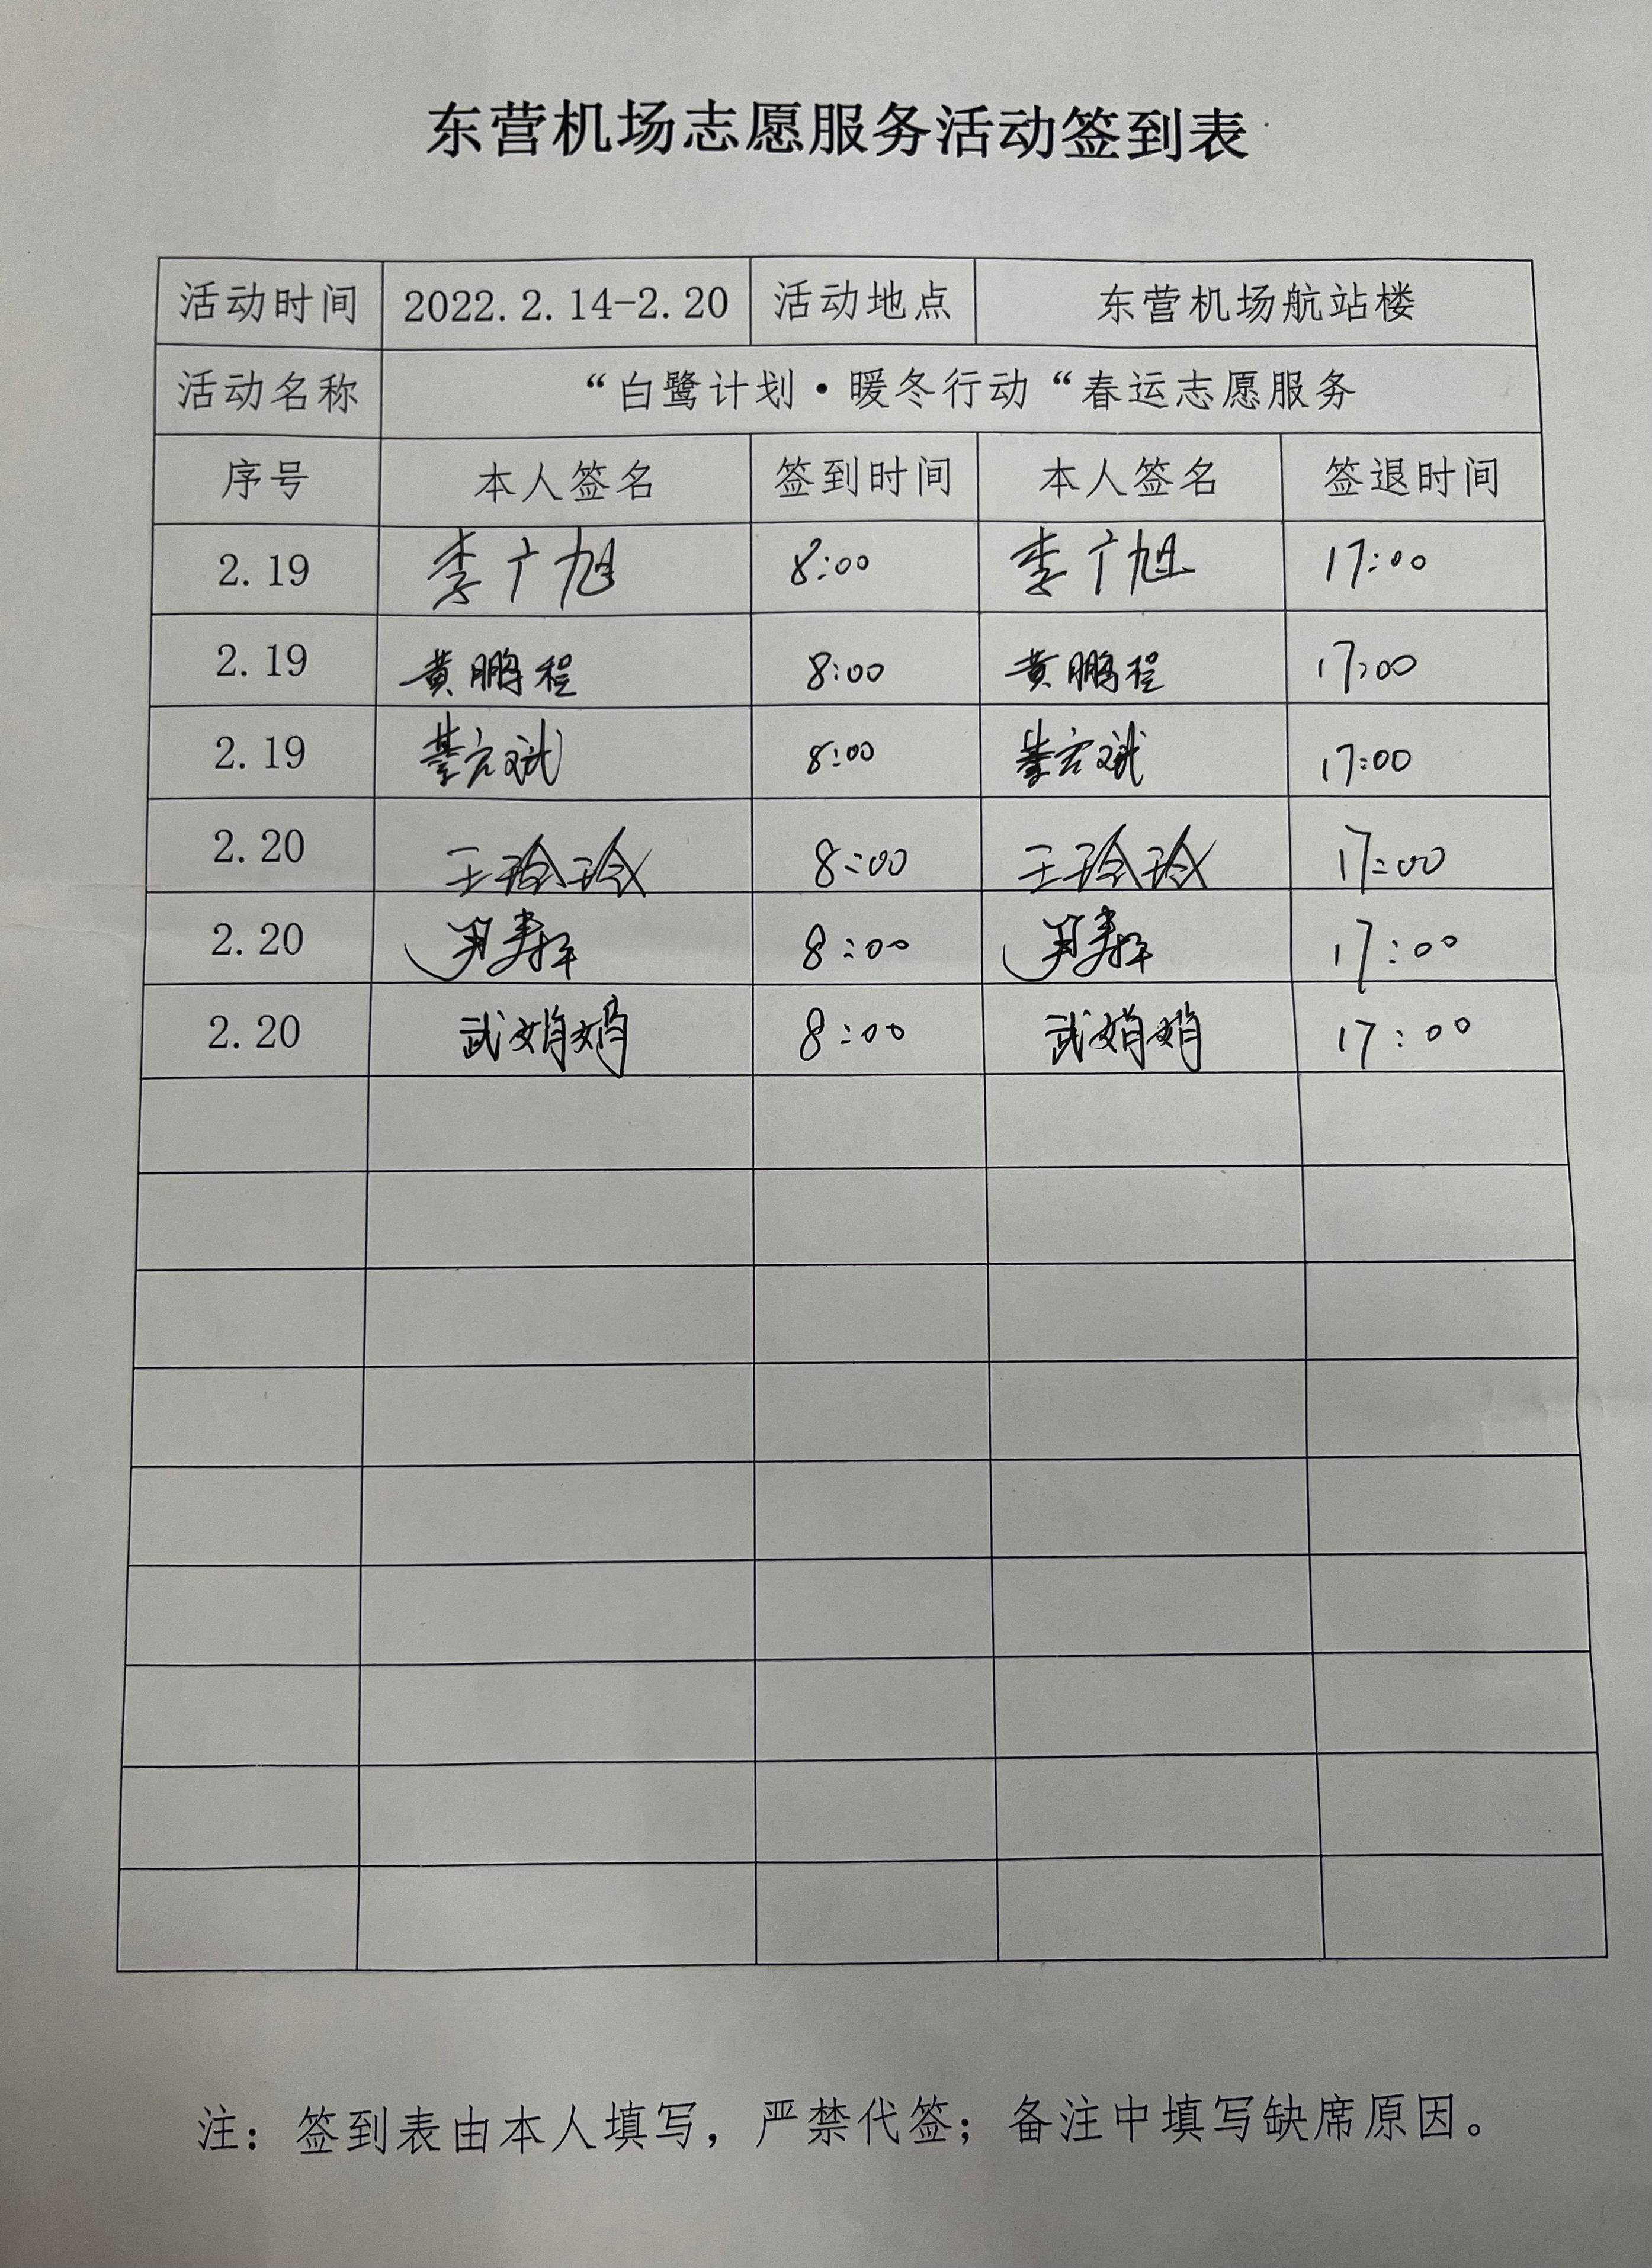 东营机场志愿服务活动签到表
活动时间 2022.2.14-2.20 活动地点 东营机场航站楼
活动名称 “白鹭计划·暖冬行动“春运志愿服务
序号 本人签名 签到时间 本人签名 签退时间
2.19 李广旭 8:00 李广旭 17:00
2.19 黄鹏程 8:00 黄鹏程 17:00
2.19 8:00 17:00
2.20 王玲玲 8:00 王玲玲 17:00
2.20 8:00 17:00
2.20 武娟娟 8:00 武娟娟 17:00
注：签到表由本人填写，严禁代签；备注中填写缺席原因。